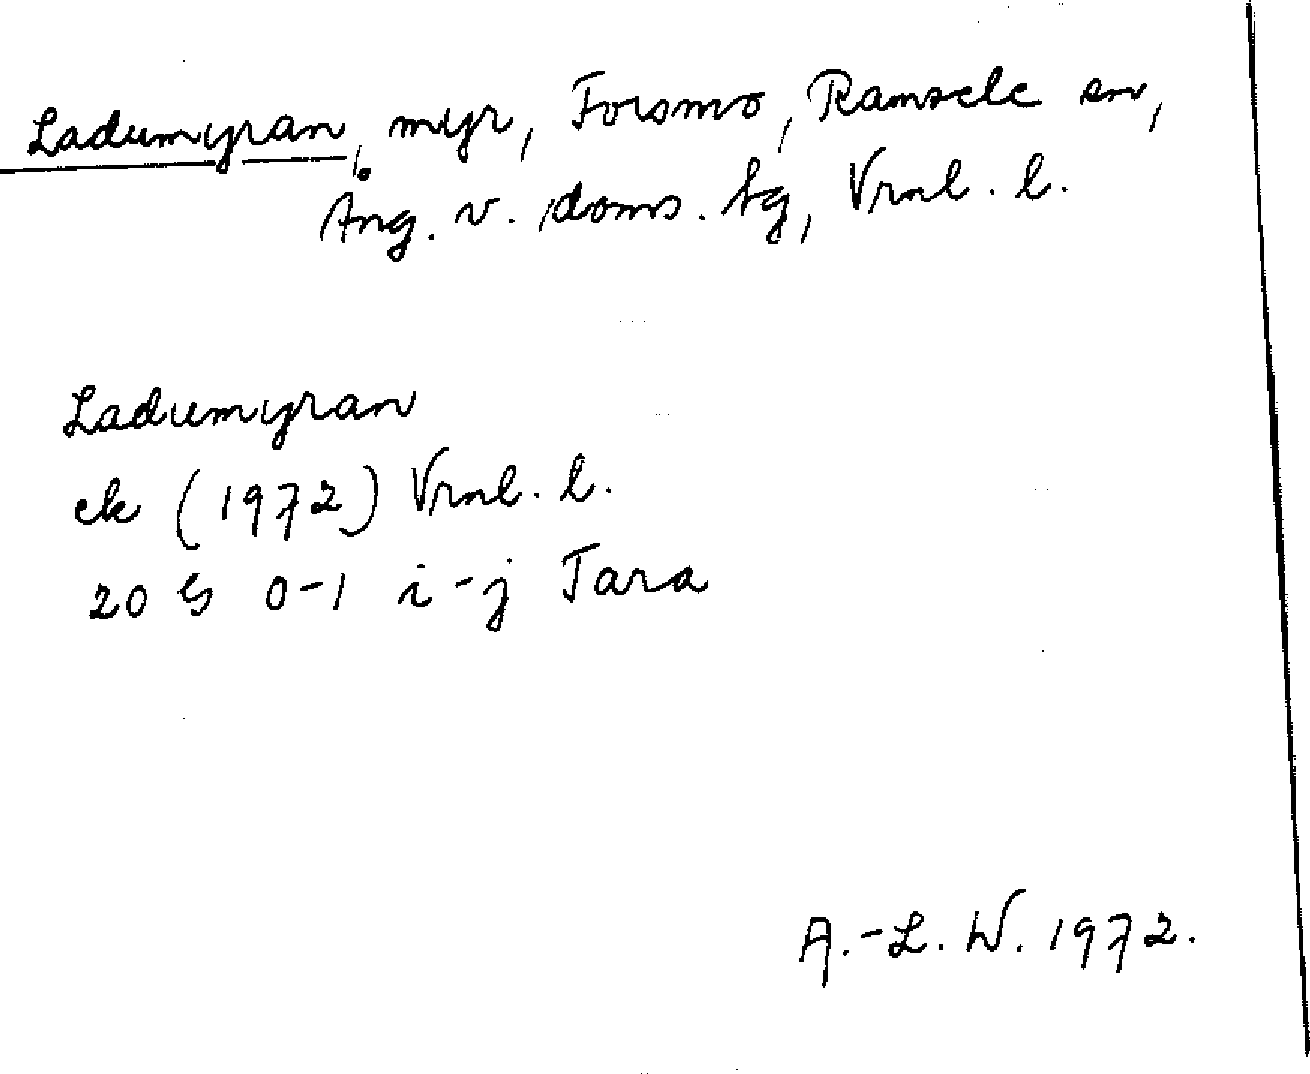 Ladumyran, myr, Forsmo, Ramsele sn,
Ång. v. doms. tg, Vrnl. l.
Ladumyran
ek (1972) Vrnl. l.
20 G 0-1 i-j Tara
A.-L. W. 1972.